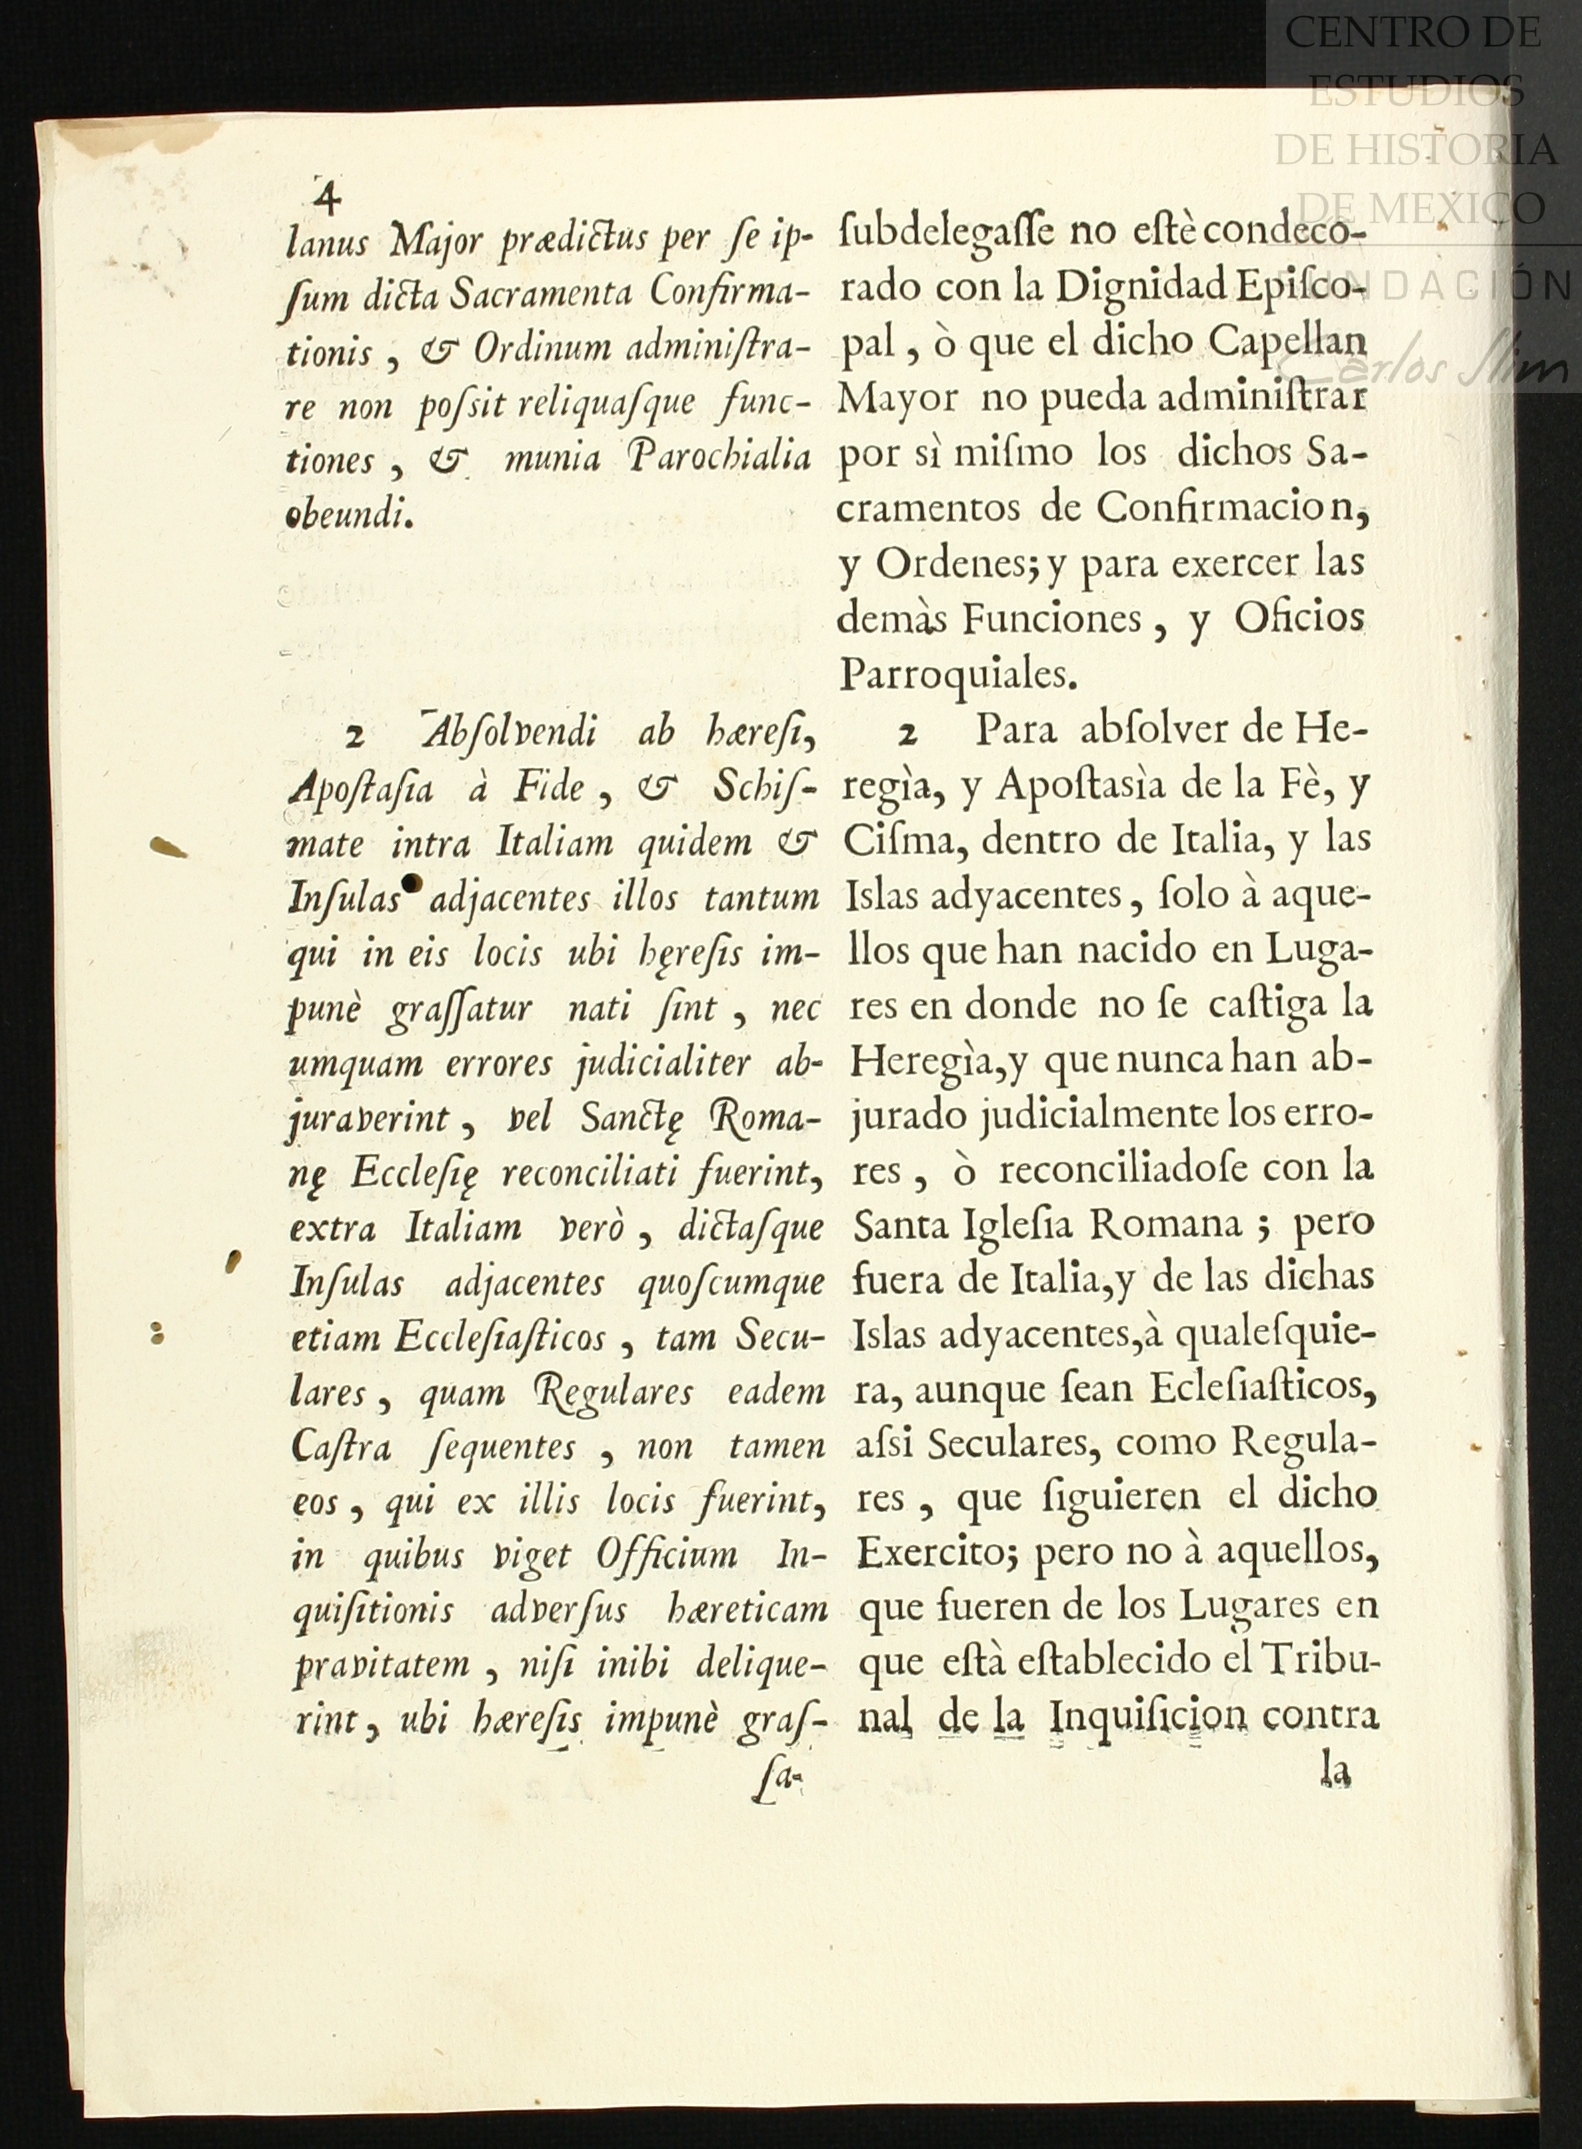 4
lanus Major prædictus per ſe ip-
ſum dicta Sacramenta Confirma-
tionis, & Ordinum adminiſtra-
re non poſsit reliquaſque func-
tiones, & munia Parochialia
obeundi.
2 Abſolvendi ab hæreſi,
Apoſtaſia à Fide, & Schiſ-
mate intra Italiam quidem &
Inſulas adjacentes illos tantum
qui in eis locis ubi hęreſis im-
punè graſſatur nati ſint, nec
umquam errores judicialiter ab-
juraverint, vel Sanctę Roma-
nę Eccleſię reconciliati fuerint,
extra Italiam verò, dictaſque
Inſulas adjacentes quoſcumque
etiam Eccleſiaſticos, tam Secu-
lares, quam Regulares eadem
Caſtra ſequentes, non tamen
eos, qui ex illis locis fuerint,
in quibus viget Officium In-
quiſitionis adverſus hæreticam
pravitatem, niſi inibi delique-
rint, ubi hæreſis impunè graſ-
ſa-
ſubdelegaſſe no eſtè condeco-
rado con la Dignidad Epiſco-
pal, ò que el dicho Capellan
Mayor no pueda adminiſtrar
por sì miſmo los dichos Sa-
cramentos de Confirmacion,
y Ordenes; y para exercer las
demàs Funciones, y Oficios
Parroquiales.
2 Para abſolver de He-
regìa, y Apoſtasìa de la Fè, y
Ciſma, dentro de Italia, y las
Islas adyacentes, ſolo à aque-
llos que han nacido en Luga-
res en donde no ſe caſtiga la
Heregìa, y que nunca han ab-
jurado judicialmente los erro-
res, ò reconciliadoſe con la
Santa Igleſia Romana; pero
fuera de Italia, y de las dichas
Islas adyacentes, à qualeſquie-
ra, aunque ſean Ecleſiaſticos,
aſsi Seculares, como Regula-
res, que ſiguieren el dicho
Exercito; pero no à aquellos,
que fueren de los Lugares en
que eſtà eſtablecido el Tribu-
nal de la Inquiſicion contra
la
CENTRO DE
ESTUDIOS
DE HISTORIA
DE MEXICO
FUNDACIÓN
Carlos Slim